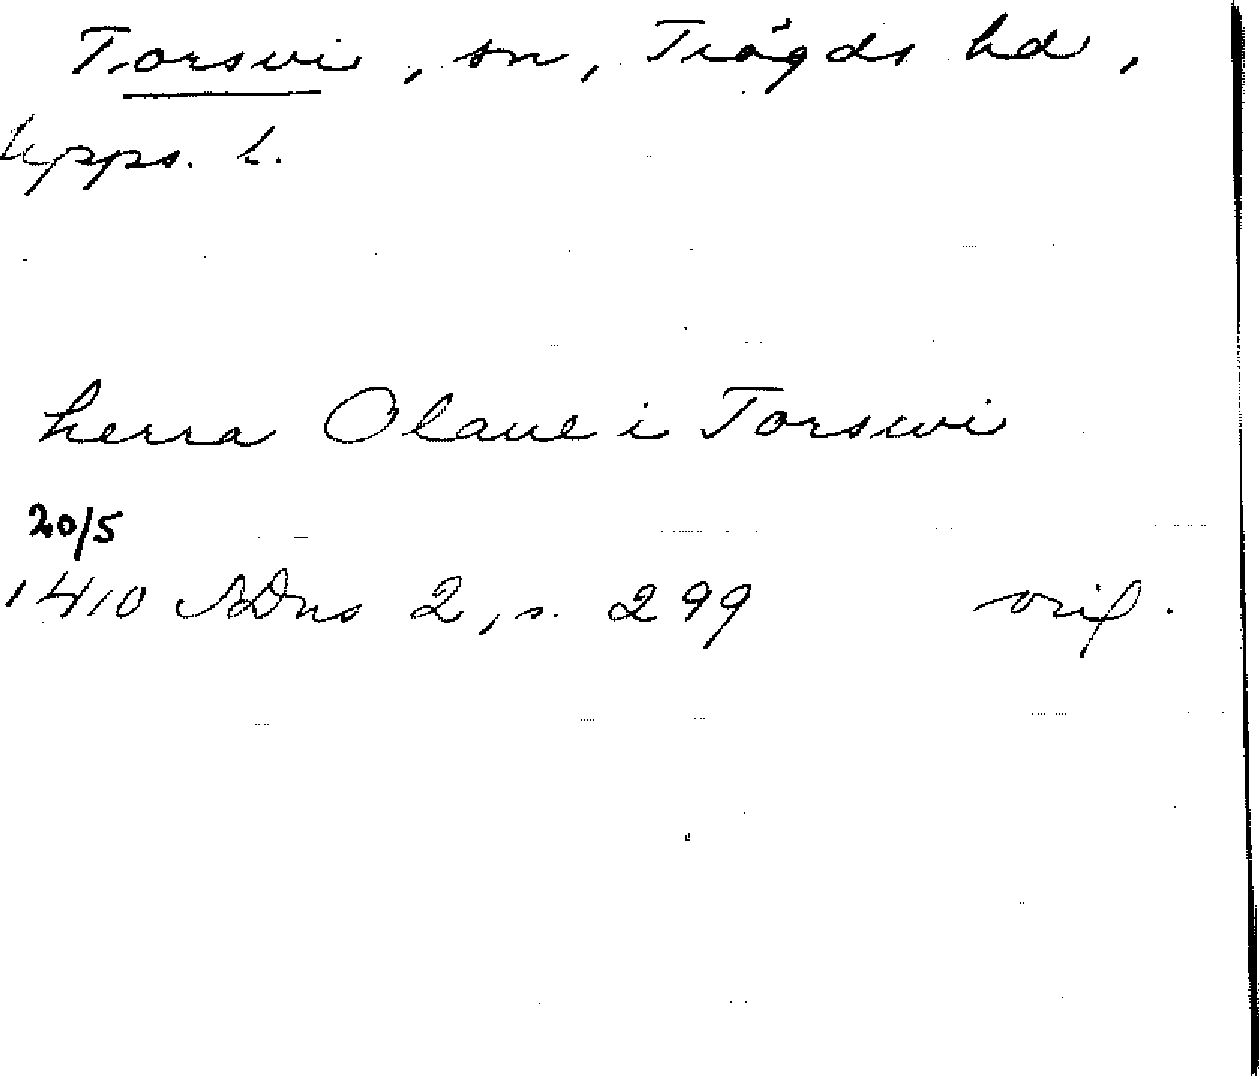 Torsvi, sn, Trögds hd,
Upps. l.
herra Olaue i Torswi
20/5
1410 SDns 2, s. 299 orig.